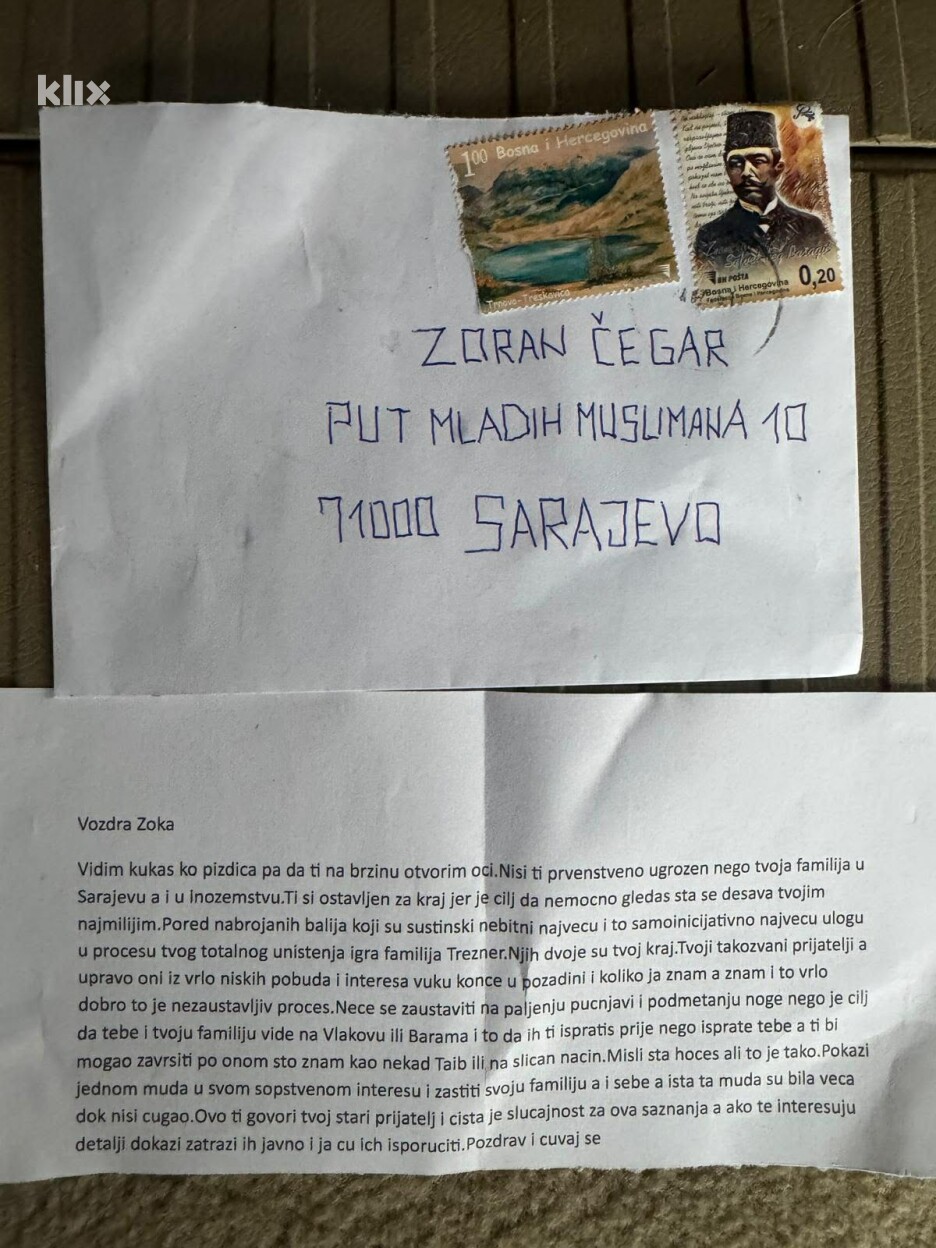 klix
1.00 Bosna i Hercegovina
Trnovo-Treskavica
BH POŠTA
Bosna i Hercegovina
0,20
ZORAN ČEGAR
PUT MLADIH MUSLIMANA 10
71000 SARAJEVO
Vozdra Zoka
Vidim kukas ko pizdica pa da ti na brzinu otvorim oci.Nisi ti prvenstveno ugrozen nego tvoja familija u
Sarajevu a i u inozemstvu.Ti si ostavljen za kraj jer je cilj da nemocno gledas sta se desava tvojim
najmilijim.Pored nabrojanih balija koji su sustinski nebitni najvecu i to samoinicijativno najvecu ulogu
u procesu tvog totalnog unistenja igra familija Trezner.Njih dvoje su tvoj kraj.Tvoji takozvani prijatelji a
upravo oni iz vrlo niskih pobuda i interesa vuku konce u pozadini i koliko ja znam a znam i to vrlo
dobro to je nezaustavljiv proces.Nece se zaustaviti na paljenju pucnjavi i podmetanju noge nego je cilj
da tebe i tvoju familiju vide na Vlakovu ili Barama i to da ih ti ispratis prije nego isprate tebe a ti bi
mogao zavrsiti po onom sto znam kao nekad Taib ili na slican nacin.Misli sta hoces ali to je tako.Pokazi
jednom muda u svom sopstvenom interesu i zastiti svoju familiju a i sebe a ista ta muda su bila veca
dok nisi cugao.Ovo ti govori tvoj stari prijatelj i cista je slucajnost za ova saznanja a ako te interesuju
detalji dokazi zatrazi ih javno i ja cu ich isporuciti.Pozdrav i cuvaj se